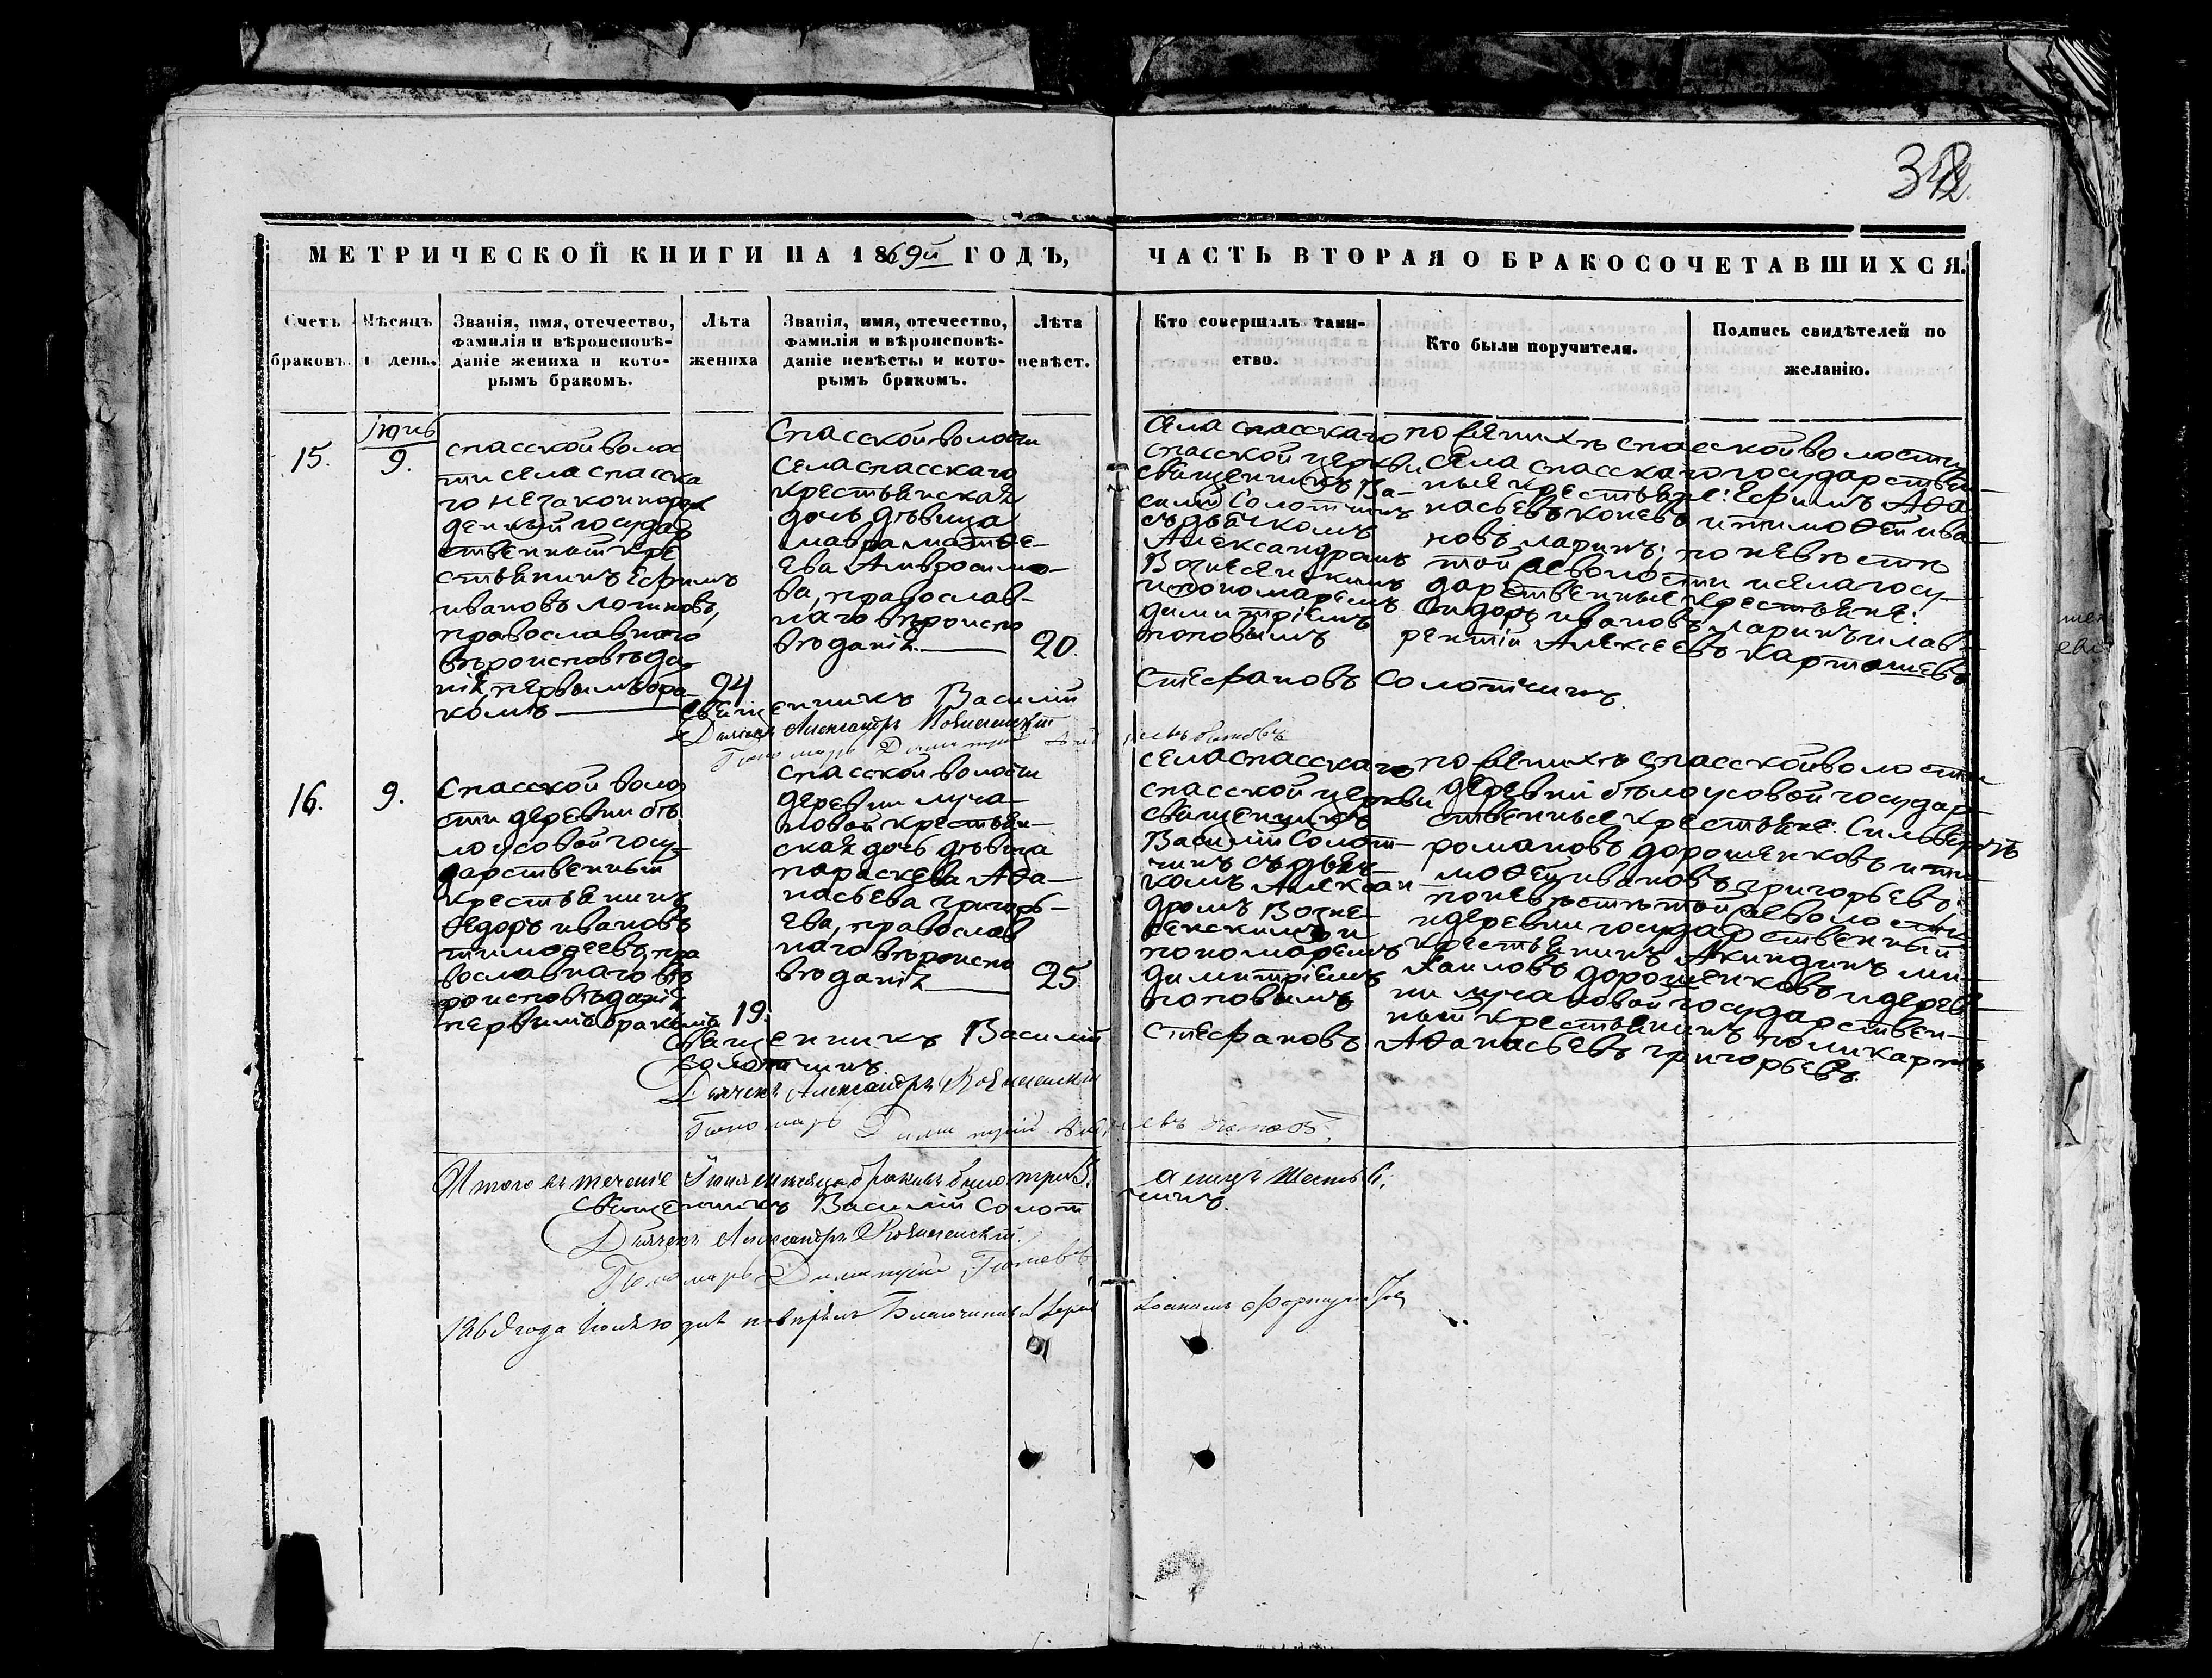 342
МЕТРИЧЕСКОЙ КНИГИ НА 1869й ГОДЪ,
ЧАСТЬ ВТОРАЯ О БРАКОСОЧЕТАВШИХСЯ.
Счетъ браковъ.
Мѣсяцъ и день.
Званія, имя, отечество,
фамилія и вѣроисповѣ-
даніе жениха и кото-
рымъ бракомъ.
Лѣта жениха
Званія, имя, отечество,
фамилія и вѣроисповѣ-
даніе невѣсты и кото-
рымъ бракомъ.
Лѣта невѣст.
Кто совершалъ таин-
ство.
Кто были поручители.
Подпись свидѣтелей по
желанію.
15.
Іюнь
9.
спасской волос
ти села спасска
го незаконнорож
денный государ
ственный кре
стьянинъ Ефимъ
ивановъ логиновъ,
православнаго
вѣроисповѣда
нія, первымъ бра-
комъ
24
Спасской волости
села спасскаго
крестьянская
дочь дѣвица
мавра матѳе-
ева Амвросимо-
ва, православ-
наго вѣроиспо
вѣданія.
20.
села спасскаго
спасской церкви
священникъ Ва-
силій Солотчинъ
съ дьячкомъ
Александромъ
Вознесенскимъ
и пономаремъ
димитріемъ
поповымъ
по женихѣ спасской волости
села спасскаго государствен-
ные крестьяне: Ефимъ Аѳа-
насьевъ коневъ и тимоѳей ива-
новъ ларинъ; по невѣстѣ
той же волости и села госу-
дарственные крестьяне:
Сидоръ ивановъ ларинъ и лав-
рентій Алексеевъ Карташевъ
Священникъ Василій Стефановъ Солотчинъ.
Дьячекъ Александръ Вознесенскій
Пономарь Димитрій Поповъ
16.
9.
Спасской воло
сти деревни бѣ
лоусовой госу
дарственный
крестьянинъ
Ѳедоръ ивановъ
тимоѳеевъ, пра
вославнаго вѣ
роисповѣданія
первымъ бракомъ
19.
спасской волости
деревни луча-
новой крестьян-
ская дочь дѣвица
параскева Аѳа-
насьева григорь-
ева, православ
наго вѣроиспо
вѣданія
25
села спасскаго
спасской церкви
священникъ
Василій Солот-
чинъ съ дьяч-
комъ Алексан-
дромъ Возне-
сенскимъ и
пономаремъ
димитріемъ
поповымъ
по женихѣ спасской волости
деревни бѣлоусовой государ-
ственные крестьяне: Сильверстъ
романовъ дорошенковъ и ти-
моѳей ивановъ григорьевъ;
по невѣстѣ той же волости
и деревни государственный
крестьянинъ Акиндинъ ми-
хаиловъ дорошенковъ и дерев-
ни лучановой государствен-
ный крестьянинъ поликарпъ
Аѳанасьевъ григорьевъ.
Священникъ Василій Стефановъ
Солотчинъ.
Дьячекъ Александръ Вознесенскій
Пономарь Димитрій Поповъ.
Итого въ теченіе Іюня мѣсяца браковъ было три 3. а лицъ шесть 6.
Священникъ Василій Солотчинъ.
Дьячекъ Александръ Вознесенскій.
Пономарь Димитрій Поповъ
1869 года Іюля 10 дня повѣрялъ Благочинный Іерей